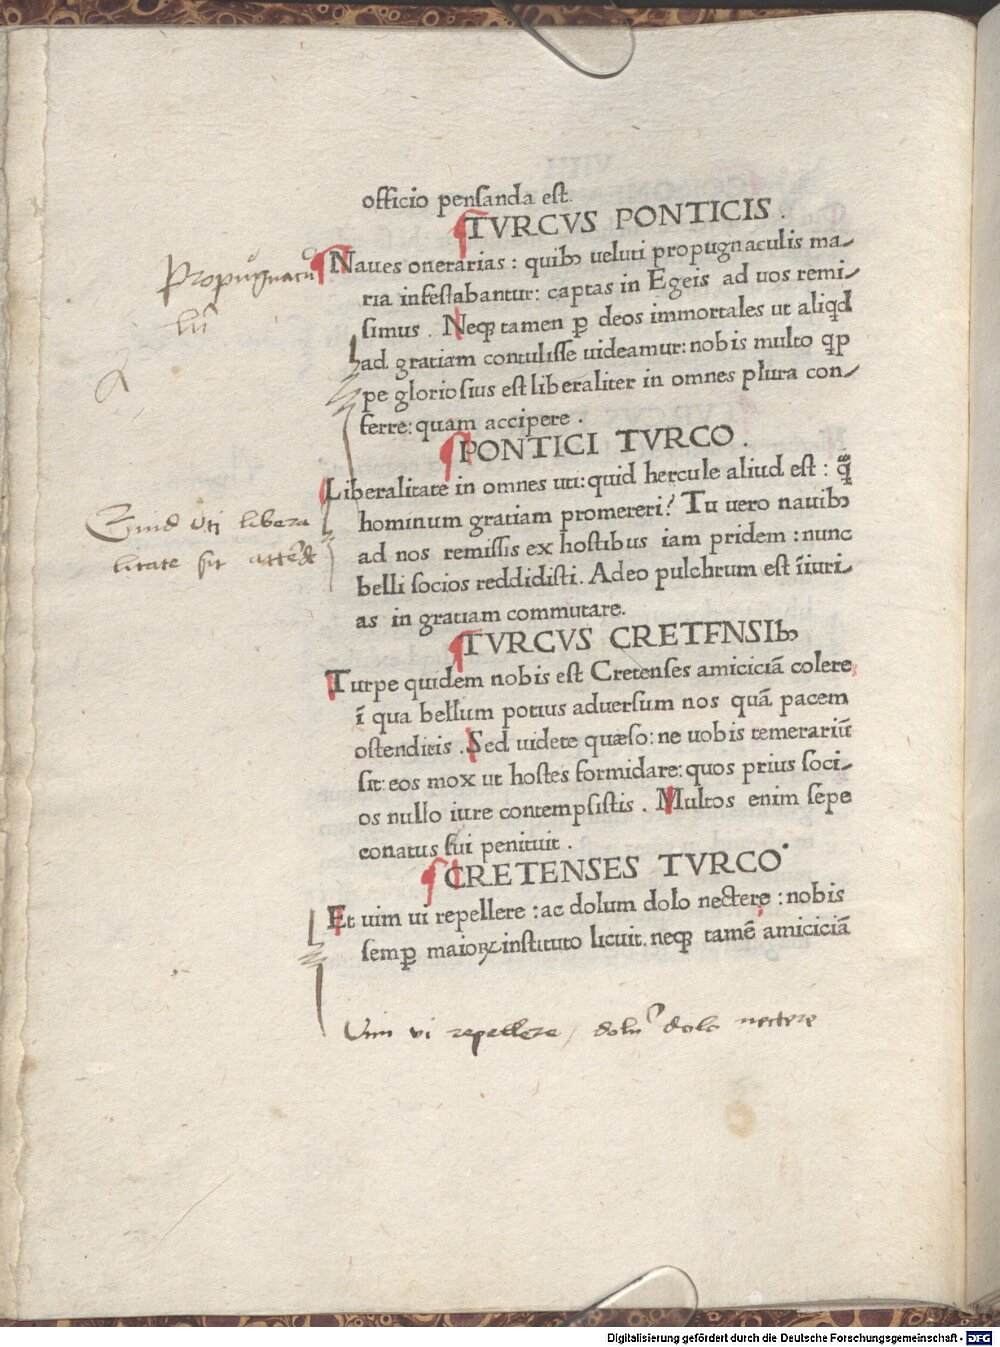 officio pensanda est.
TVRCVS PONTICIS .
Naues onerarias : quibꝫ ueluti propugnaculis ma-
ria infestabantur: captas in Egeis ad uos remi-
simus . Neqꝫ tamen ꝑ deos immortales ut aliqd
ad gratiam contulisse uideamur: nobis multo qꝫ p
pe gloriosius est liberaliter in omnes plura con-
ferre: quam accipere .
PONTICI TVRCO .
Liberalitate in omnes uti: quid hercule aliud est : q̄
hominum gratiam promereri? Tu uero nauibꝫ
ad nos remissis ex hostibus iam pridem : nunc
belli socios reddidisti. Adeo pulchrum est īiuri-
as in gratiam commutare.
TVRCVS CRETENSIbꝫ
Turpe quidem nobis est Cretenses amiciciā colere
ī qua bellum potius aduersum nos quā pacem
ostenditis . Sed uidete quæso: ne uobis temerariū
sit: eos mox ut hostes formidare: quos prius soci-
os nullo iure contempsistis . Multos enim sepe
conatus sui penituit .
CRETENSES TVRCO.
Et uim ui repellere : ac dolum dolo nectere : nobis
semꝑ maioꝝ instituto licuit. neqꝫ tamē amiciciā
Propugnacu
lū
Quid uti libera
litate sit
Vim vi repellere / dolū dolo nectere
Digitalisierung gefördert durch die Deutsche Forschungsgemeinschaft - DFG